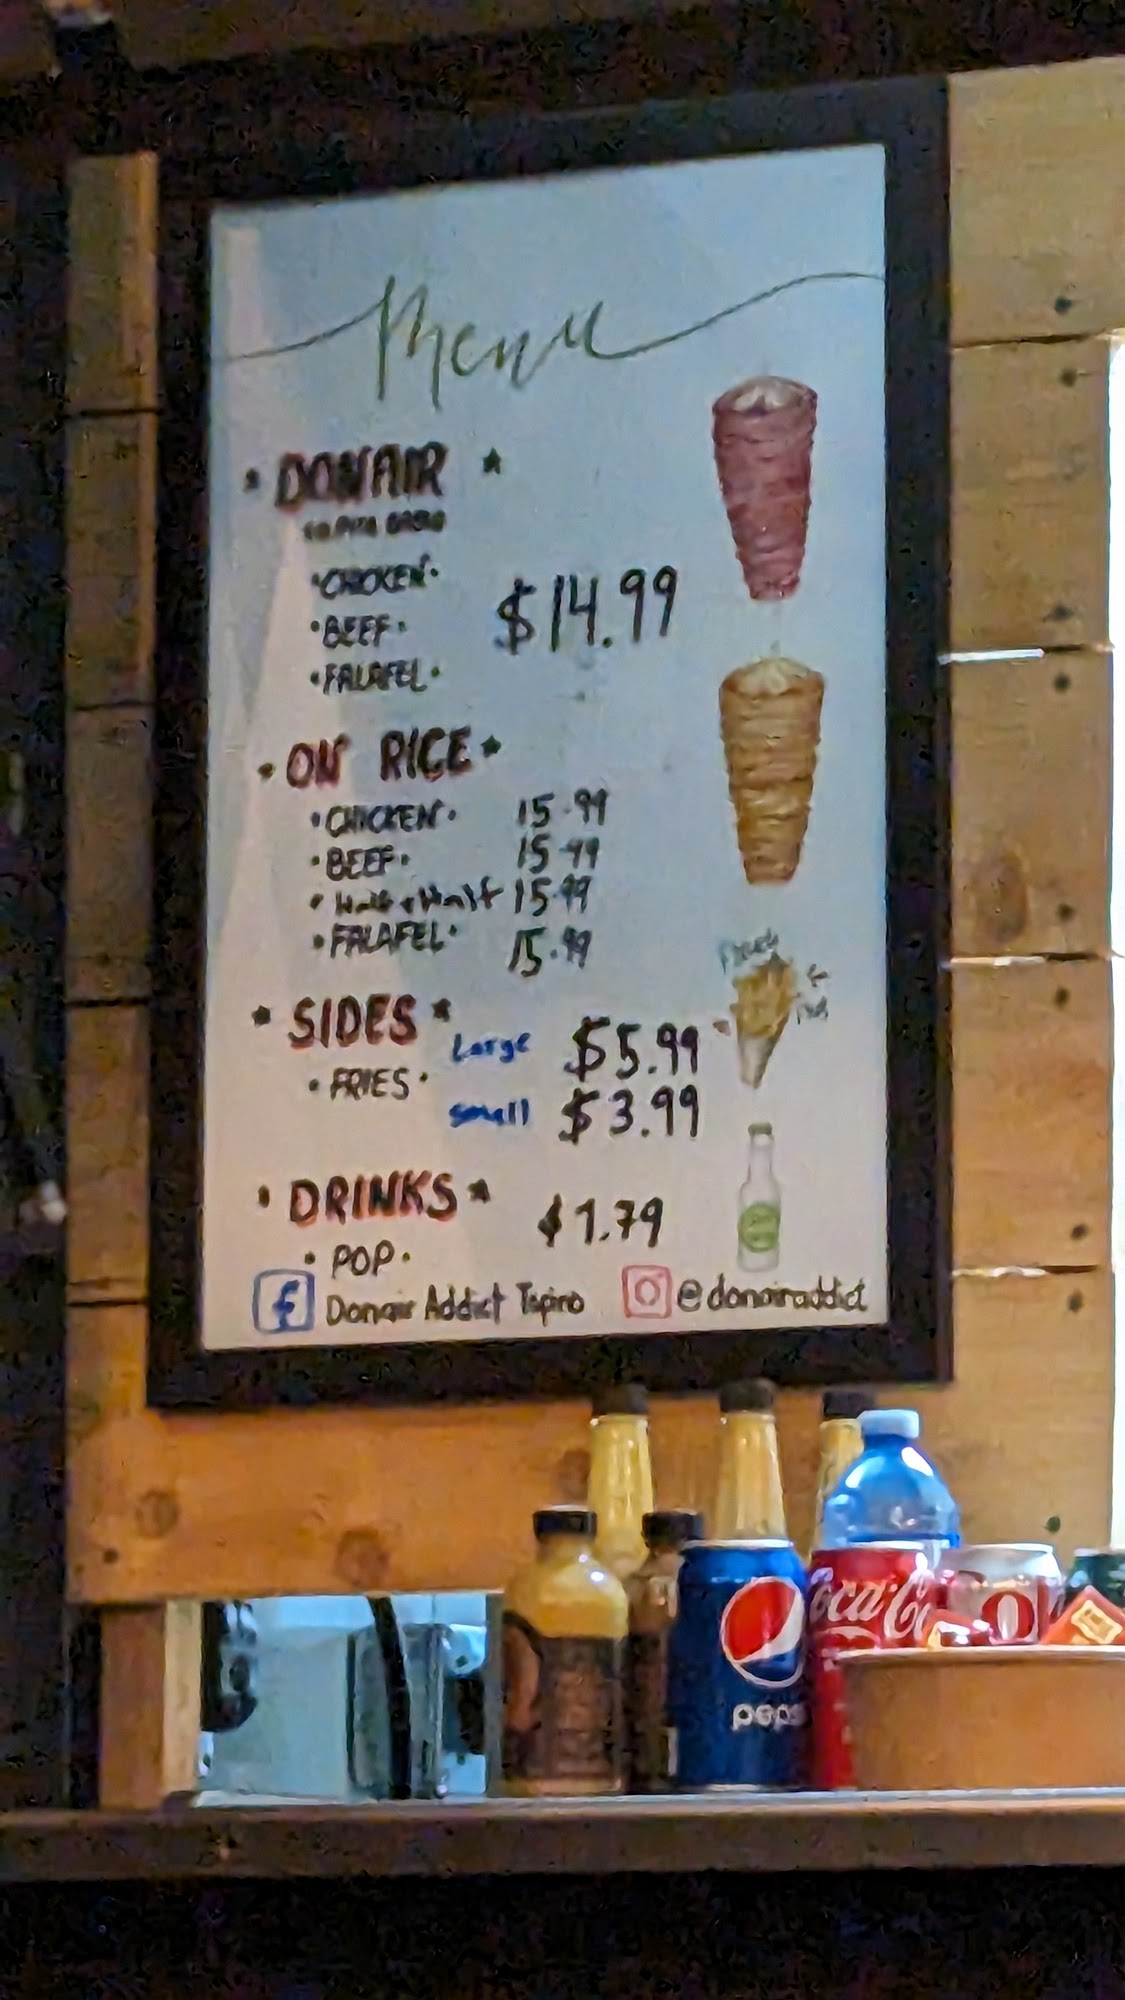 Menu
• DONAIR ★
ON PITA BREAD
•CHICKEN•
•BEEF•
•FALAFEL•
$14.99
• ON RICE ★
•CHICKEN• 15.99
•BEEF• 15.99
• Half & Half 15.99
•FALAFEL• 15.99
★ SIDES ★
• FRIES •
Large $5.99
small $3.99
• DRINKS ★
• POP •
$1.79
Donair Addict Tofino
@donairaddict
pepsi
Coca-Co